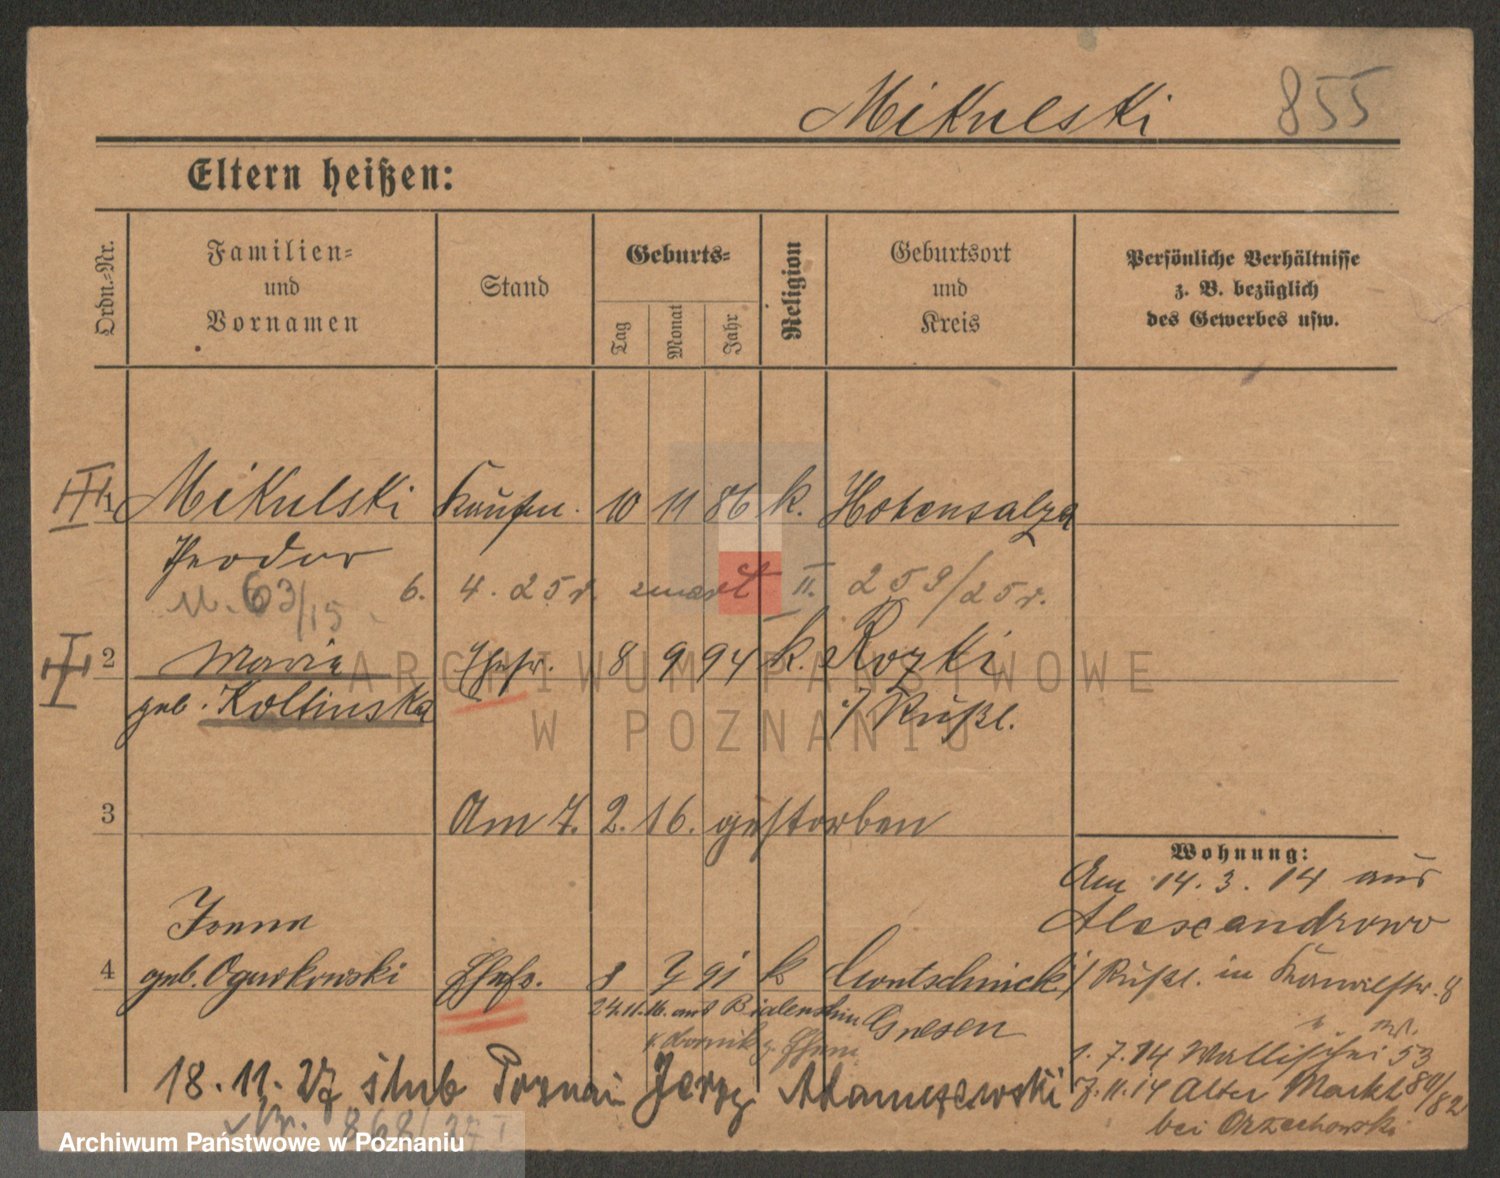 Mikulski 855
Eltern heißen:
Ordn.-Nr.
Familien- und Vornamen
Stand
Geburts-
Tag
Monat
Jahr
Religion
Geburtsort und Kreis
Persönliche Verhältnisse z. B. bezüglich des Gewerbes usw.
1 Mikulski Kaufm. 10 11 86 k. Hohensalza
Theodor
U. 63/15 6. 4. 25 r. zmarł II. 259/25 r.
2 Maria Ehefr. 8 9 94 k. Rozki
geb. Koltinska / Rußl.
3 Am 7. 2. 16. gestorben
Wohnung:
Am 14. 3. 14 aus
Irena Alexandrowo
4 geb. Ogurkowski Ehefr. 8 7 91 k
/ Rußl. in 8
24.11.16. aus Gnesen
1. 7. 14 Wallischei 53
18. 11. 27 ślub Poznań Jerzy Adamczewski
7. 11. 14 Alter Markt 80/82
Nr. 868/27 I
bei Orzechowski
ARCHIWUM PAŃSTWOWE
W POZNANIU
Archiwum Państwowe w Poznaniu